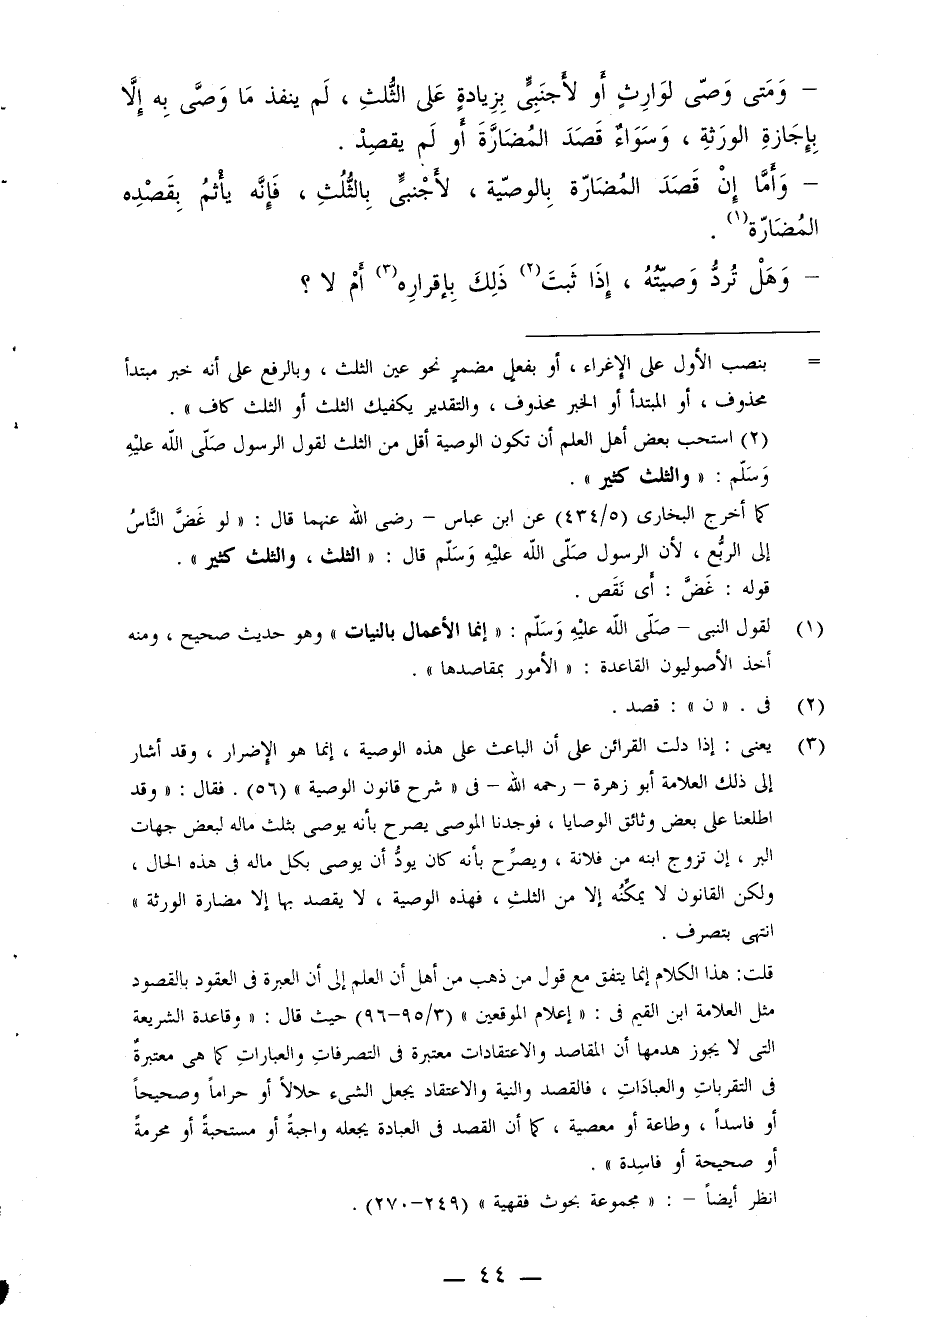 – وَمَتى وَصّى لوَارِثٍ أَو لأَجنَبِيٍّ بِزِيادةٍ عَلى الثُّلثِ ، لَم ينفذ مَا وَصَّى به إِلَّا
بِإِجَازةِ الورَثةِ ، وَسَوَاءٌ قَصَدَ المُضَارَّةَ أَو لَم يقصِدْ .
– وَأَمَّا إِنْ قَصَدَ المُضَارّة بالوصيّة ، لأَجْنبىٍّ بِالثُّلُثِ ، فَإِنَّه يأْثمُ بِقَصْدِه
المُضَارّة(١) .
– وَهَلْ تُردُّ وَصيّتُهُ ، إِذَا ثَبتَ(٢) ذَلِكَ بِإقرارِه(٣) أَمْ لا ؟
= بنصب الأول على الإغراء ، أو بفعلٍ مضمرٍ نحو عين الثلث ، وبالرفع على أنه خبر مبتدأ
محذوف ، أو المبتدأ أو الخبر محذوف ، والتقدير يكفيك الثلث أو الثلث كاف » .
(٢) استحب بعض أهل العلم أن تكون الوصية أقل من الثلث لقول الرسول صَلّى اللّه عليْهِ
وَسَلّم : « والثلث كثير » .
كما أخرج البخارى (٤٣٤/٥) عن ابن عباس – رضى الله عنهما قال : « لو غَضَّ النَّاسُ
إلى الربُّع ، لأن الرسول صَلّى اللّه عليْهِ وَسَلّم قال : « الثلث ، والثلث كثير » .
قوله : غَضَّ : أَى نَقَص .
(١) لقول النبى – صَلّى اللّه عليْهِ وَسَلّم : « إنما الأعمال بالنيات » وهو حديث صحيح ، ومنه
أخذ الأصوليون القاعدة : « الأمور بمقاصدها » .
(٢) فى . « ن » : قصد .
(٣) يعنى : إذا دلت القرائن على أن الباعث على هذه الوصية ، إنما هو الإضرار ، وقد أشار
إلى ذلك العلامة أبو زهرة – رحمه الله – فى « شرح قانون الوصية » (٥٦) . فقال : « وقد
اطلعنا على بعض وثائق الوصايا ، فوجدنا الموصى يصرح بأنه يوصى بثلث ماله لبعض جهات
البر ، إن تزوج ابنه من فلانة ، ويصرِّح بأنه كان يودُّ أن يوصى بكل ماله فى هذه الحال ،
ولكن القانون لا يمكِّنُه إلا من الثلثِ ، فهذه الوصية ، لا يقصد بها إلا مضارة الورثة »
انتهى بتصرف .
قلت: هذا الكلام إنما يتفق مع قول من ذهب من أهل أن العلم إلى أن العبرة فى العقود بالقصود
مثل العلامة ابن القيم فى : « إعلام الموقعين » (٩٥/٣–٩٦) حيث قال : « وقاعدة الشريعة
التى لا يجوز هدمها أن المقاصد والاعتقادات معتبرة فى التصرفاتِ والعباراتِ كما هى معتبرةٌ
فى التقرباتِ والعبادَاتِ ، فالقصد والنية والاعتقاد يجعل الشىء حلالاً أو حراماً وصحيحاً
أو فاسداً ، وطاعة أو معصية ، كما أن القصد فى العبادة يجعله واجبةً أو مستحبةً أو محرمةً
أو صحيحة أو فاسِدة » .
انظر أيضاً – : « مجموعة بحوث فقهية » (٢٤٩–٢٧٠) .
— ٤٤ —